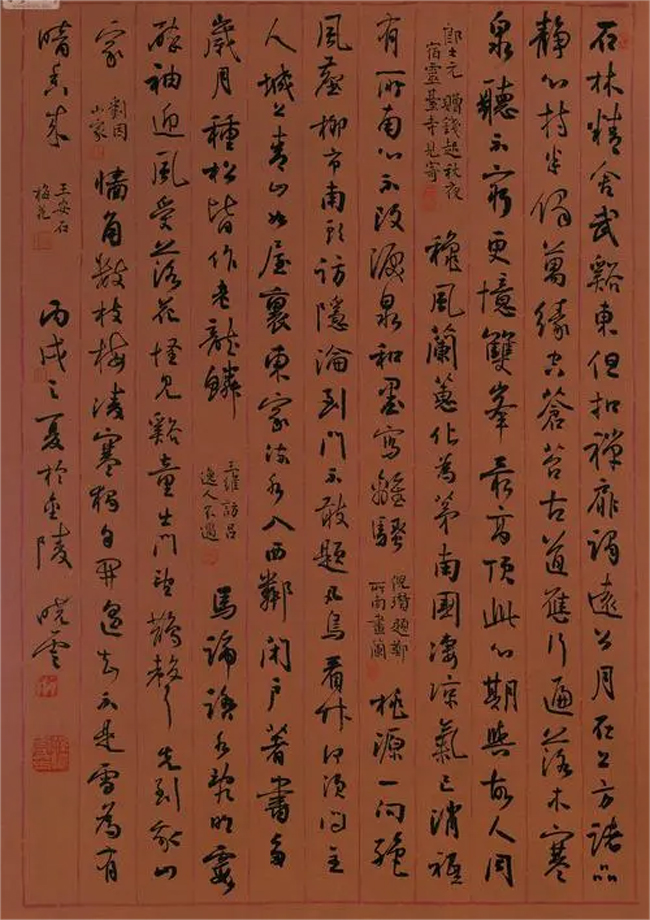 石林精舍武谿東夜扣禪扉謁遠公月在上方諸品
靜心持半偈萬緣空蒼苔古道應行遍落木寒
泉聽不窮更憶雙峯最高頂此心期與故人同
郎士元 贈錢起秋夜
宿靈臺寺見寄
穐風蘭蕙化為茅南國凄涼氣已消秪
有所南心不改淚泉和墨寫離騷
倪瓚題鄭
所南畫蘭
桃源一向絕
風塵柳市南頭訪隱淪到門不敢題凡鳥看竹何須問主
人城上青山如屋裏東家流水入西鄰閉戶著書多
歲月種松皆作老龍鱗
王維 訪呂
逸人不遇
馬蹄踏水亂明霞
醉袖迎風受落花怪見谿童出門望鵲聲先到我山
家
劉因
山家
牆角數枝梅凌寒獨自開遙知不是雪為有
暗香來
王安石
梅花
丙戌之夏於金陵 曉雲